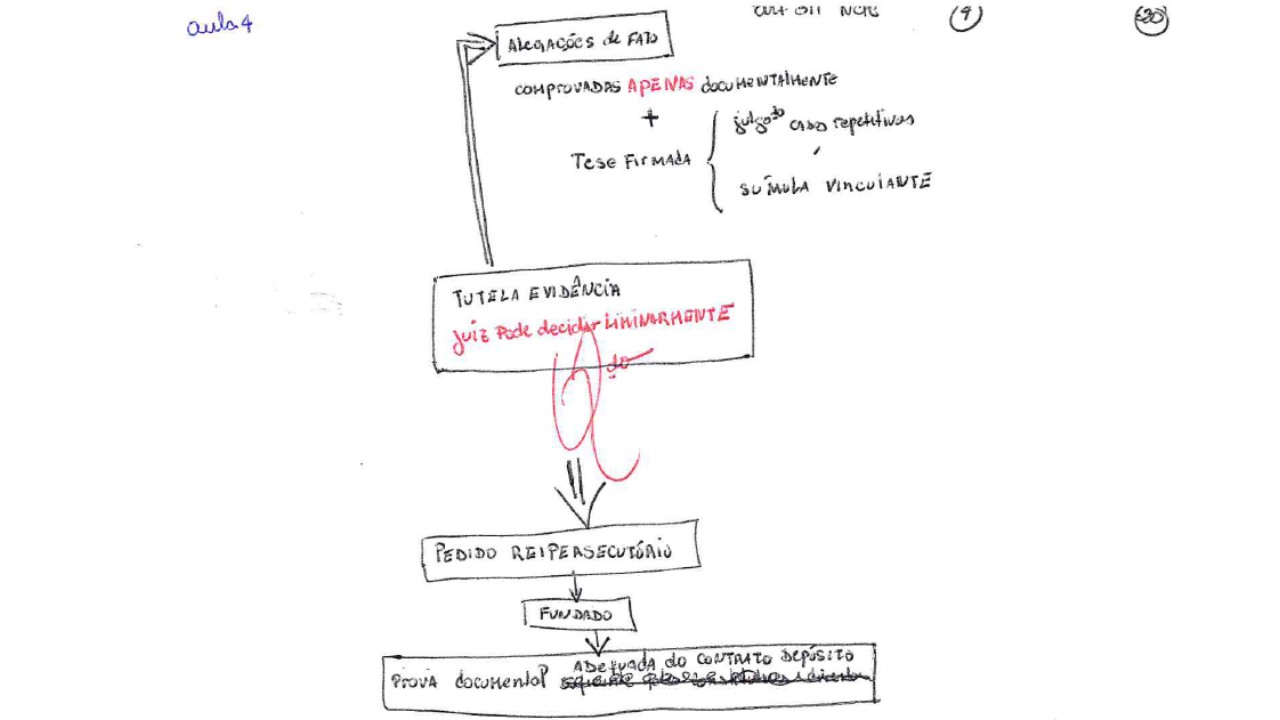 aula 4
art 311 NCPC
9
20
Alegações de FATO
comprovadas APENAS documentalmente
+
julgado casos repetitivos
Tese Firmada
súmula vinculante
TUTELA EVIDÊNCIA
juiz Pode decidir LIMINARMENTE
PEDIDO REIPERSECUTÓRIO
FUNDADO
ADEQUADA do CONTRATO DEPÓSITO
PROVA documental